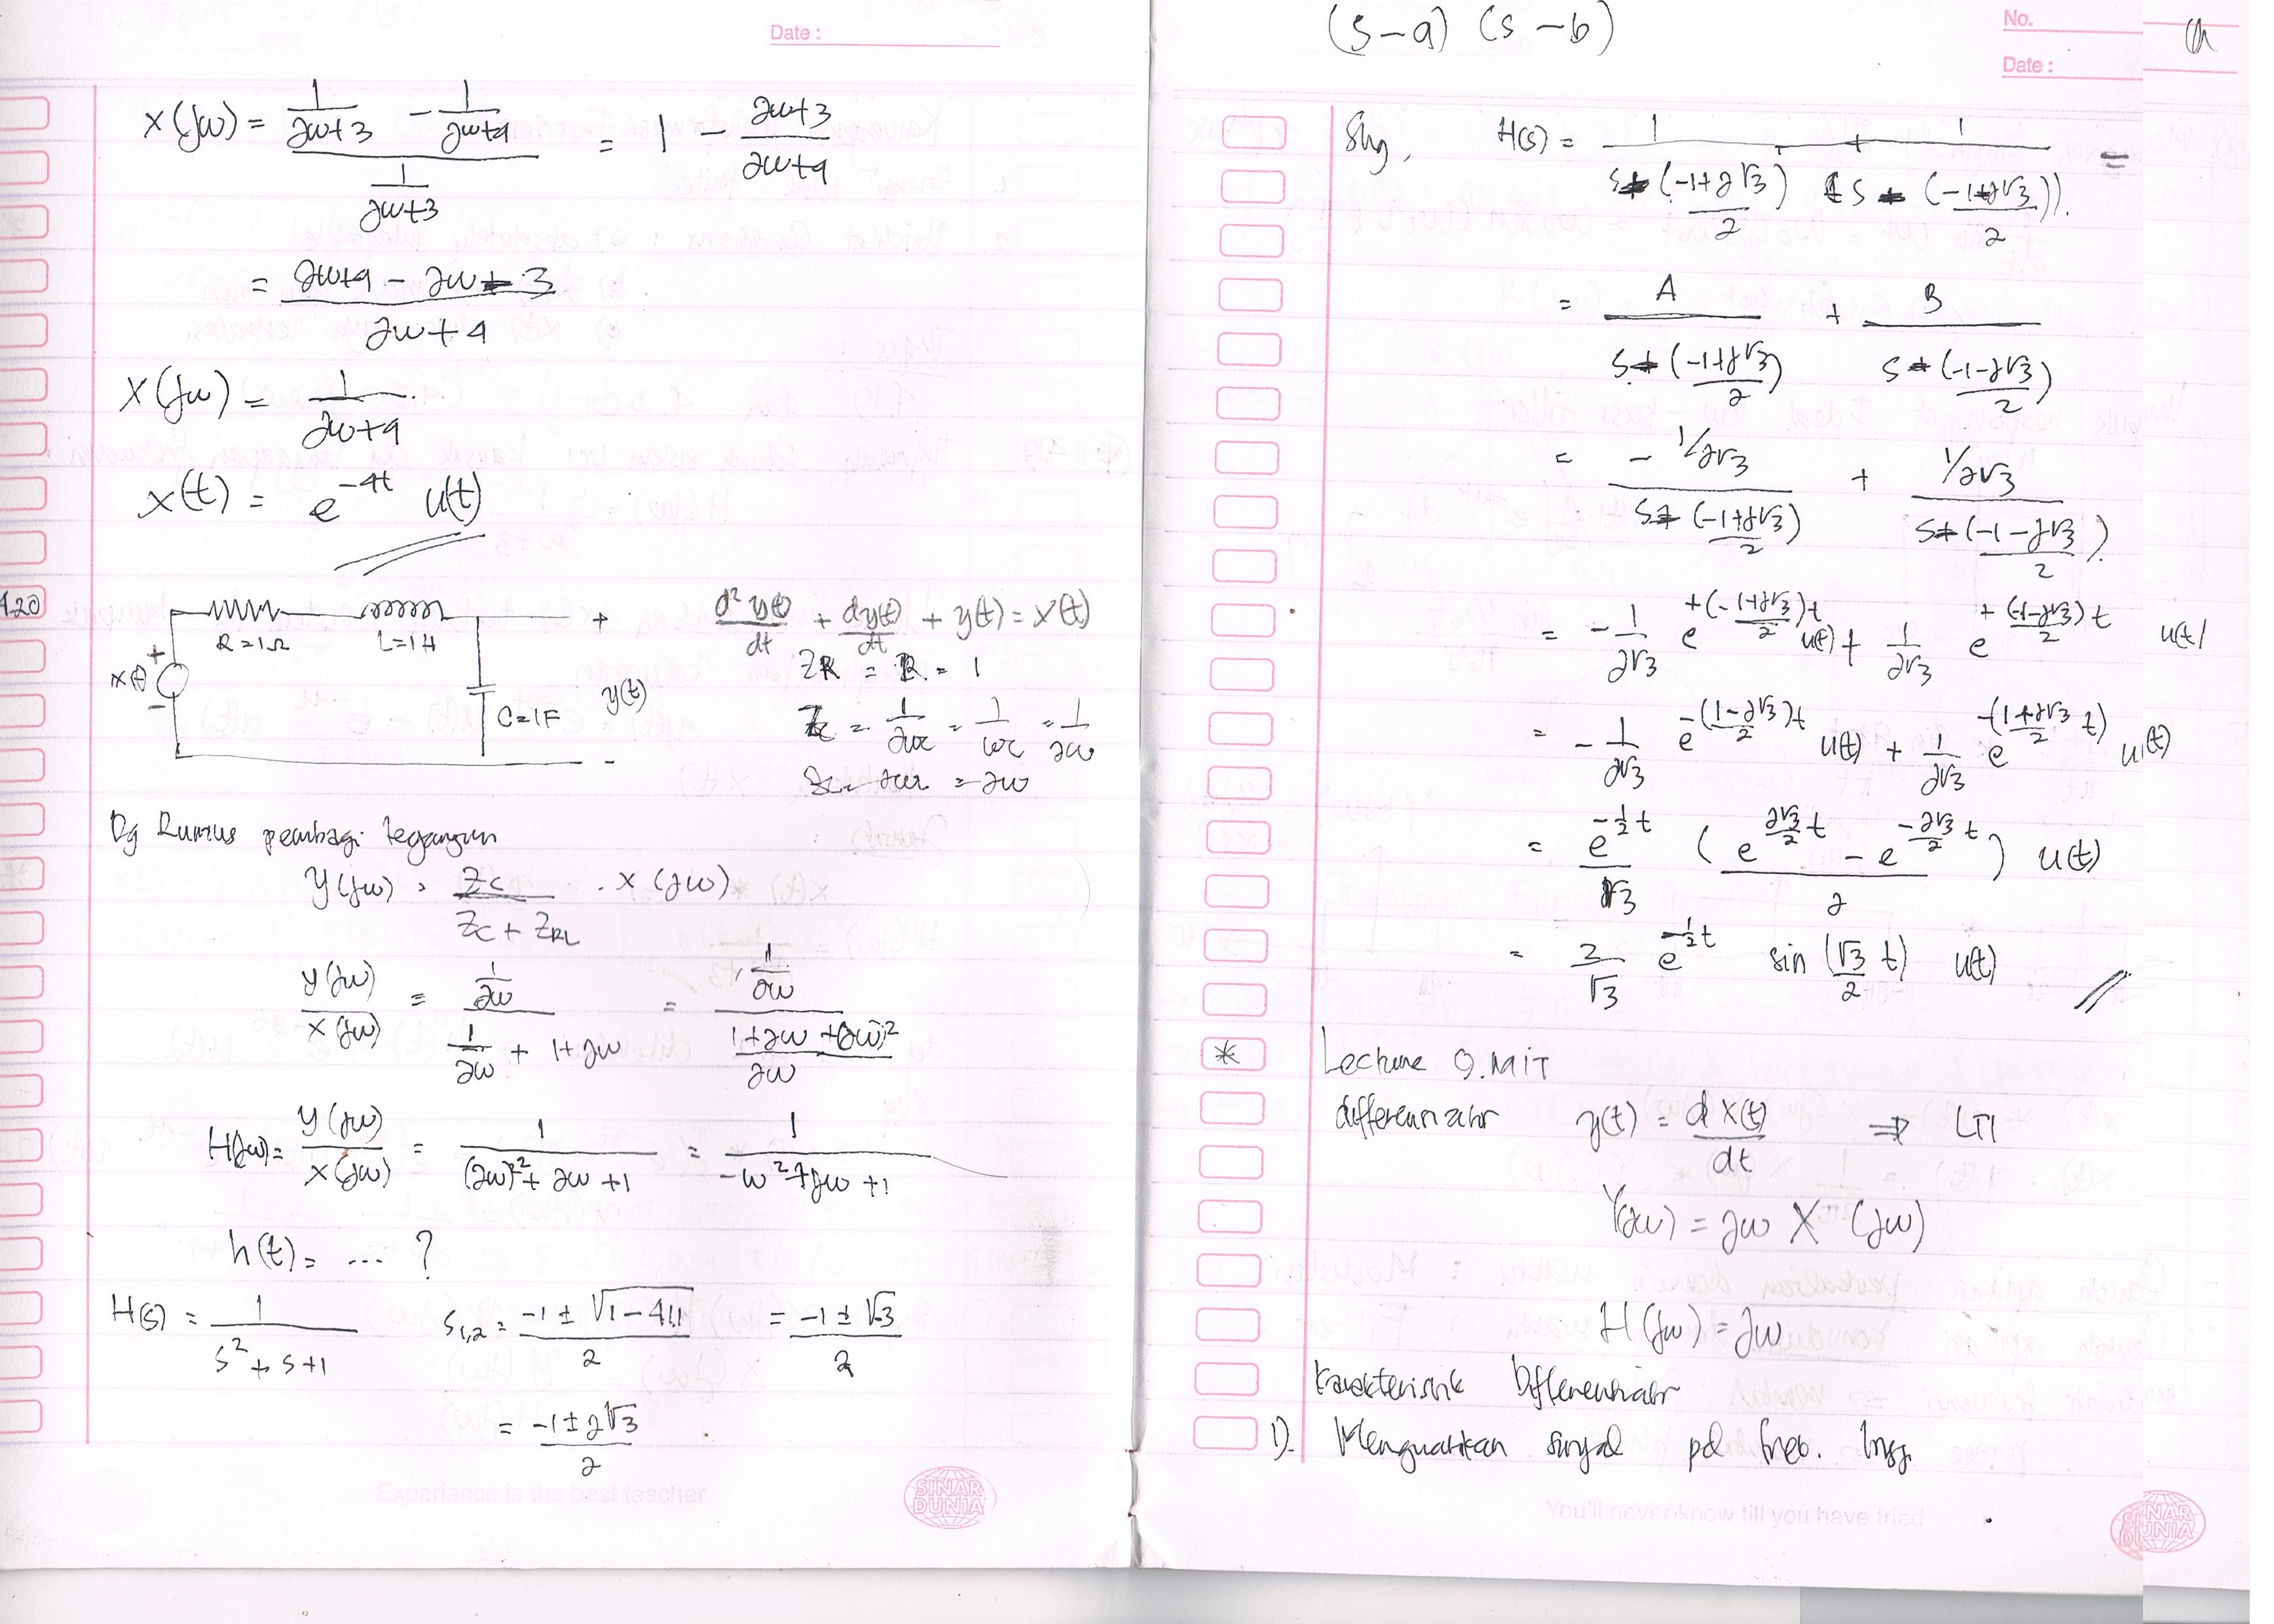 Date :
X(jω) = (1/(jω+3) - 1/(jω+4)) / (1/(jω+3)) = 1 - (jω+3)/(jω+4)
= (jω+4 - jω - 3)/(jω+4)
X(jω) = 1/(jω+4)
x(t) = e^(-4t) u(t)
4.20
R=1Ω L=1H +
x(t) + -
C=1F y(t)
-
d²y(t)/dt + dy(t)/dt + y(t) = x(t)
ZR = R = 1
Zc = 1/jωc = 1/ωc = 1/jω
= jω
Dg Rumus pembagi tegangan
Y(jω) = Zc/(Zc + ZRL) . X(jω)
Y(jω)/X(jω) = (1/jω)/(1/jω + 1+jω) = (1/jω)/((1+jω+(jω)²)/jω)
H(jω) = Y(jω)/X(jω) = 1/((jω)²+jω+1) = 1/(-ω²+jω+1)
h(t) = ... ?
H(s) = 1/(s²+s+1) s1,2 = (-1±√(1-4.1.1))/2 = (-1±√-3)/2
= (-1±j√3)/2
Experience is the best teacher
SINAR DUNIA
(s-a) (s-b)
No.
Date :
Shg, H(s) = 1/(s-(-1+j√3)/2) + 1/(s-(-1-j√3)/2) =
= A/(s-(-1+j√3)/2) + B/(s-(-1-j√3)/2)
= -(1/j√3)/(s-(-1+j√3)/2) + (1/j√3)/(s-(-1-j√3)/2)
= -1/j√3 e^(+(-1+j√3)/2)t u(t) + 1/j√3 e^(+(-1-j√3)/2)t u(t)
= -1/j√3 e^(-(1-j√3)/2)t u(t) + 1/j√3 e^(-(1+j√3)/2 t) u(t)
= e^(-½t)/√3 (e^(j√3/2 t) - e^(-j√3/2 t))/j u(t)
= 2/√3 e^(-½t) sin(√3/2 t) u(t)
* Lecture 9. MIT
differensiator y(t) = dx(t)/dt ⇒ LTI
Y(jω) = jω X(jω)
H(jω) = jω
Karakteristik Differensiator
1). Menguatkan sinyal pd frek. tngg.
You'll never know till you have tried
SINAR DUNIA